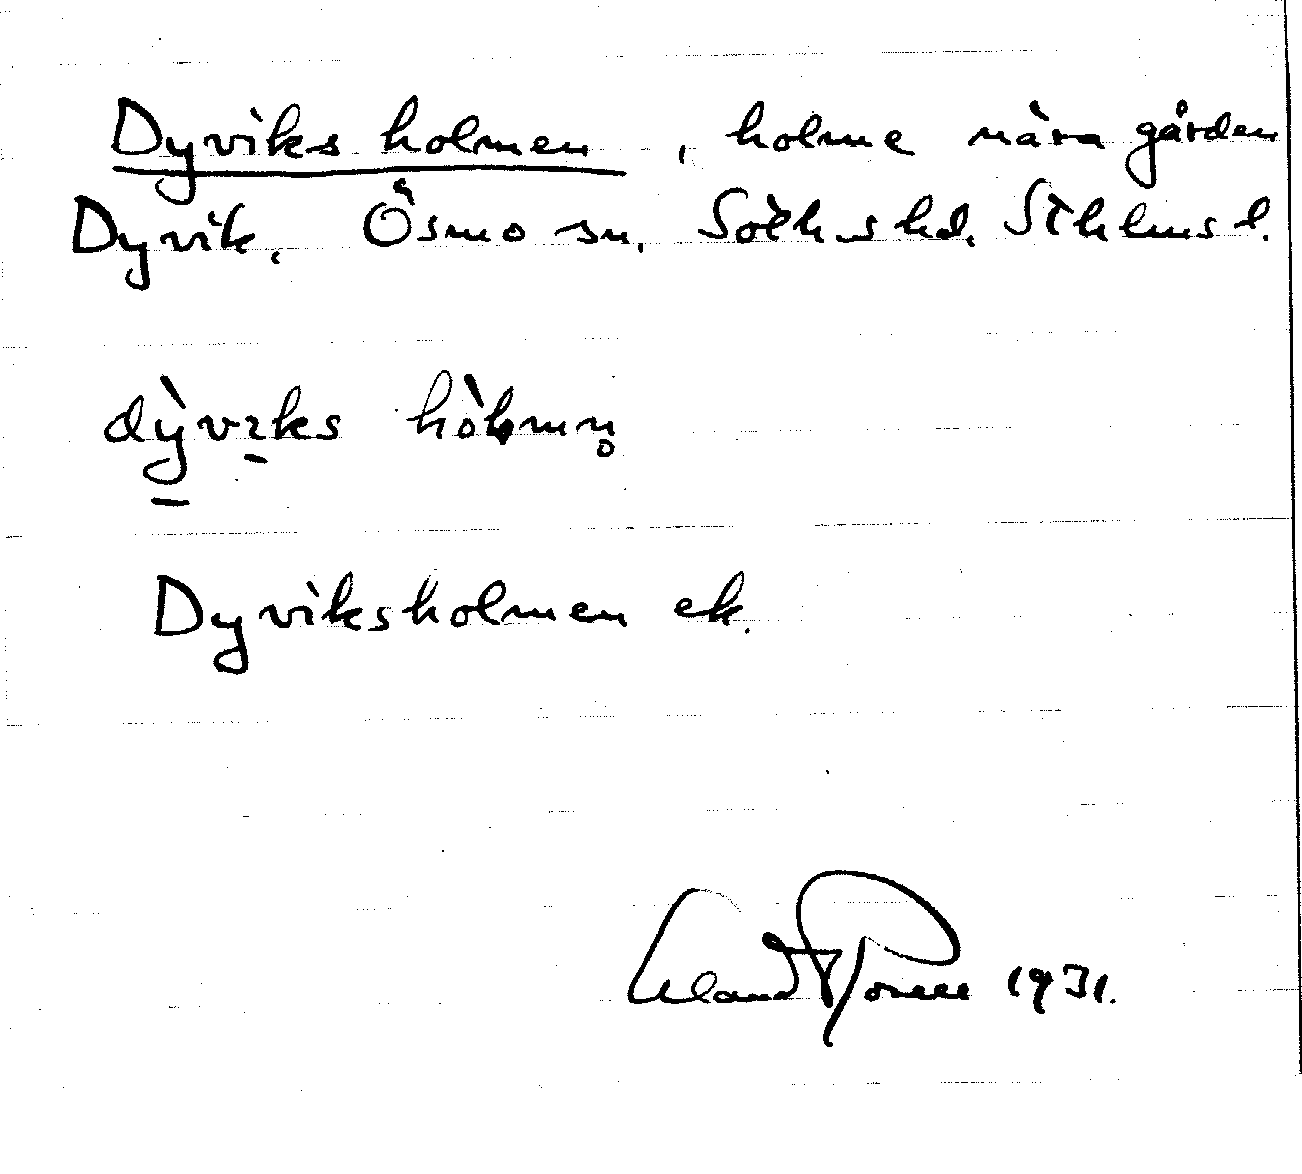 Dyviks holmen, holme nära gården
Dyvik, Ösmo sn, Soths hd, Sthlms l.
dỳvıks hòlmn̥
Dyviksholmen ek.
1931.